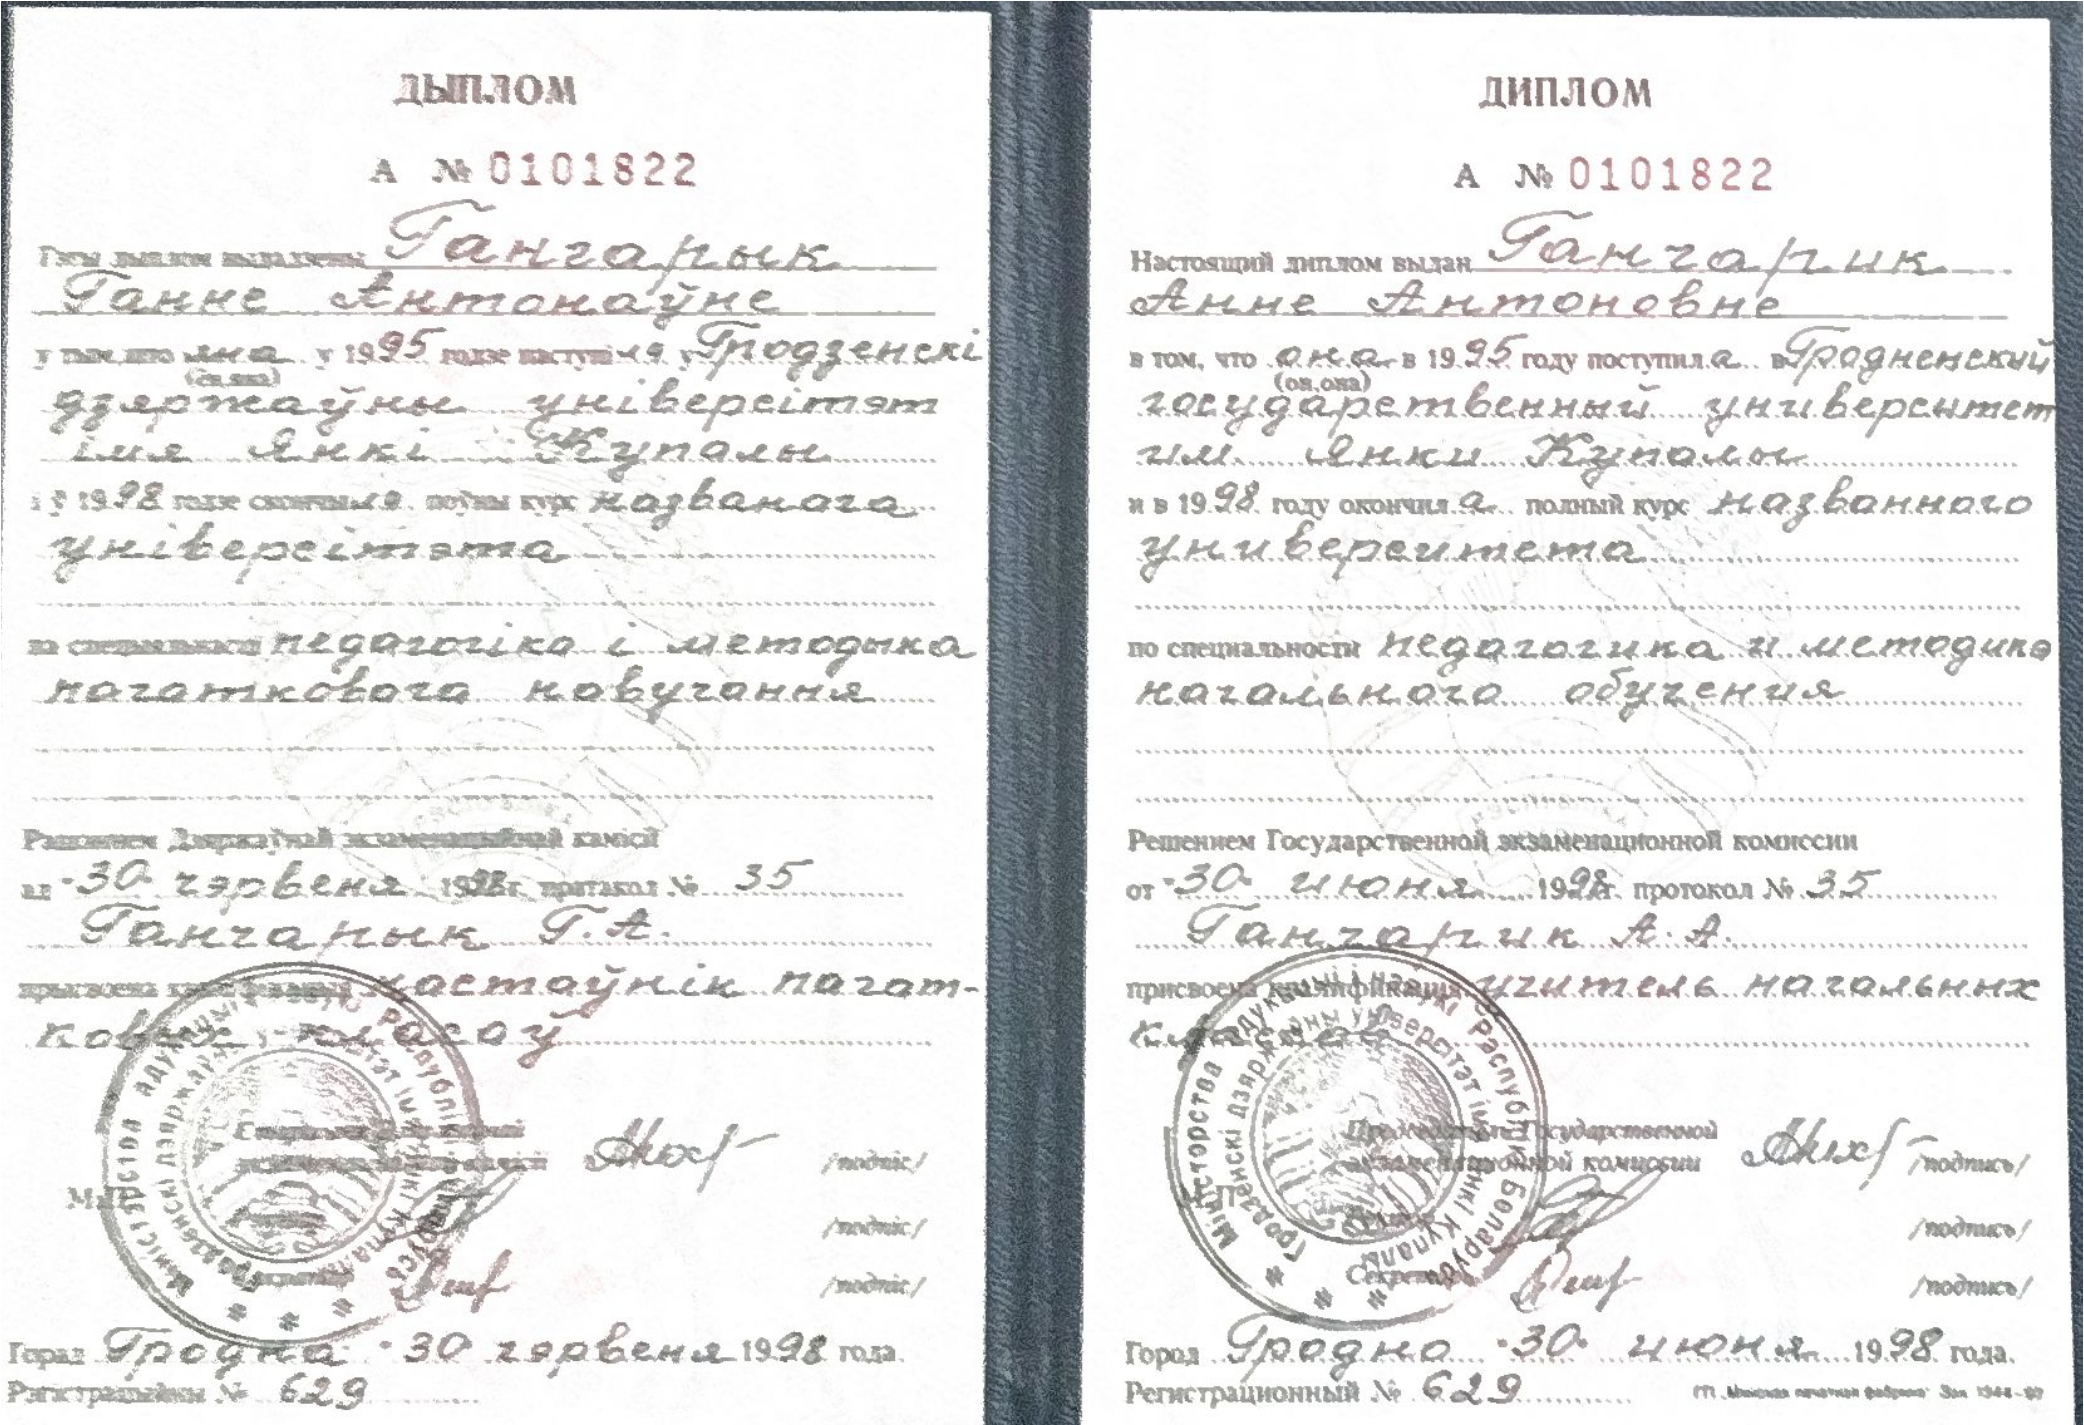 ДЫПЛОМ
А № 0101822
Гэты дыплом выдадзены Ганчарык
Ганне Антонаўне
у тым, што яна у 1995 годзе паступіла у Гродзенскі
(ён, яна)
дзяржаўны універсітэт
імя Янкі Купалы
і ў 1998 годзе скончыла поўны курс названага
універсітэта
па спецыяльнасці педагогіка і методыка
пачатковага навучання
Рашэннем Дзяржаўнай экзаменацыйнай камісіі
ад "30" чэрвеня 1998 г. пратакол № 35
Ганчарык Г.А.
прысвоена кваліфікацыя настаўнік пачат-
ковых класаў
/подпіс/
М.П.
/подпіс/
/подпіс/
Горад Гродна "30" чэрвеня 1998 года.
Рэгістрацыйны № 629
ДИПЛОМ
А № 0101822
Настоящий диплом выдан Ганчарик
Анне Антоновне
в том, что она в 1995 году поступила в Гродненский
(он, она)
государственный университет
им. Янки Купалы
и в 1998 году окончила полный курс названного
университета
по специальности педагогика и методика
начального обучения
Решением Государственной экзаменационной комиссии
от "30" июня 1998 г. протокол № 35
Ганчарик А.А.
присвоена квалификация учитель начальных
классов
Председатель Государственной
экзаменационной комиссии /подпись/
М.П.
Ректор /подпись/
Секретарь /подпись/
Город Гродно "30" июня 1998 года.
Регистрационный № 629
Міністэрства адукацыі і навукі Рэспублікі Беларусь
Гродзенскі дзяржаўны універсітэт імя Янкі Купалы